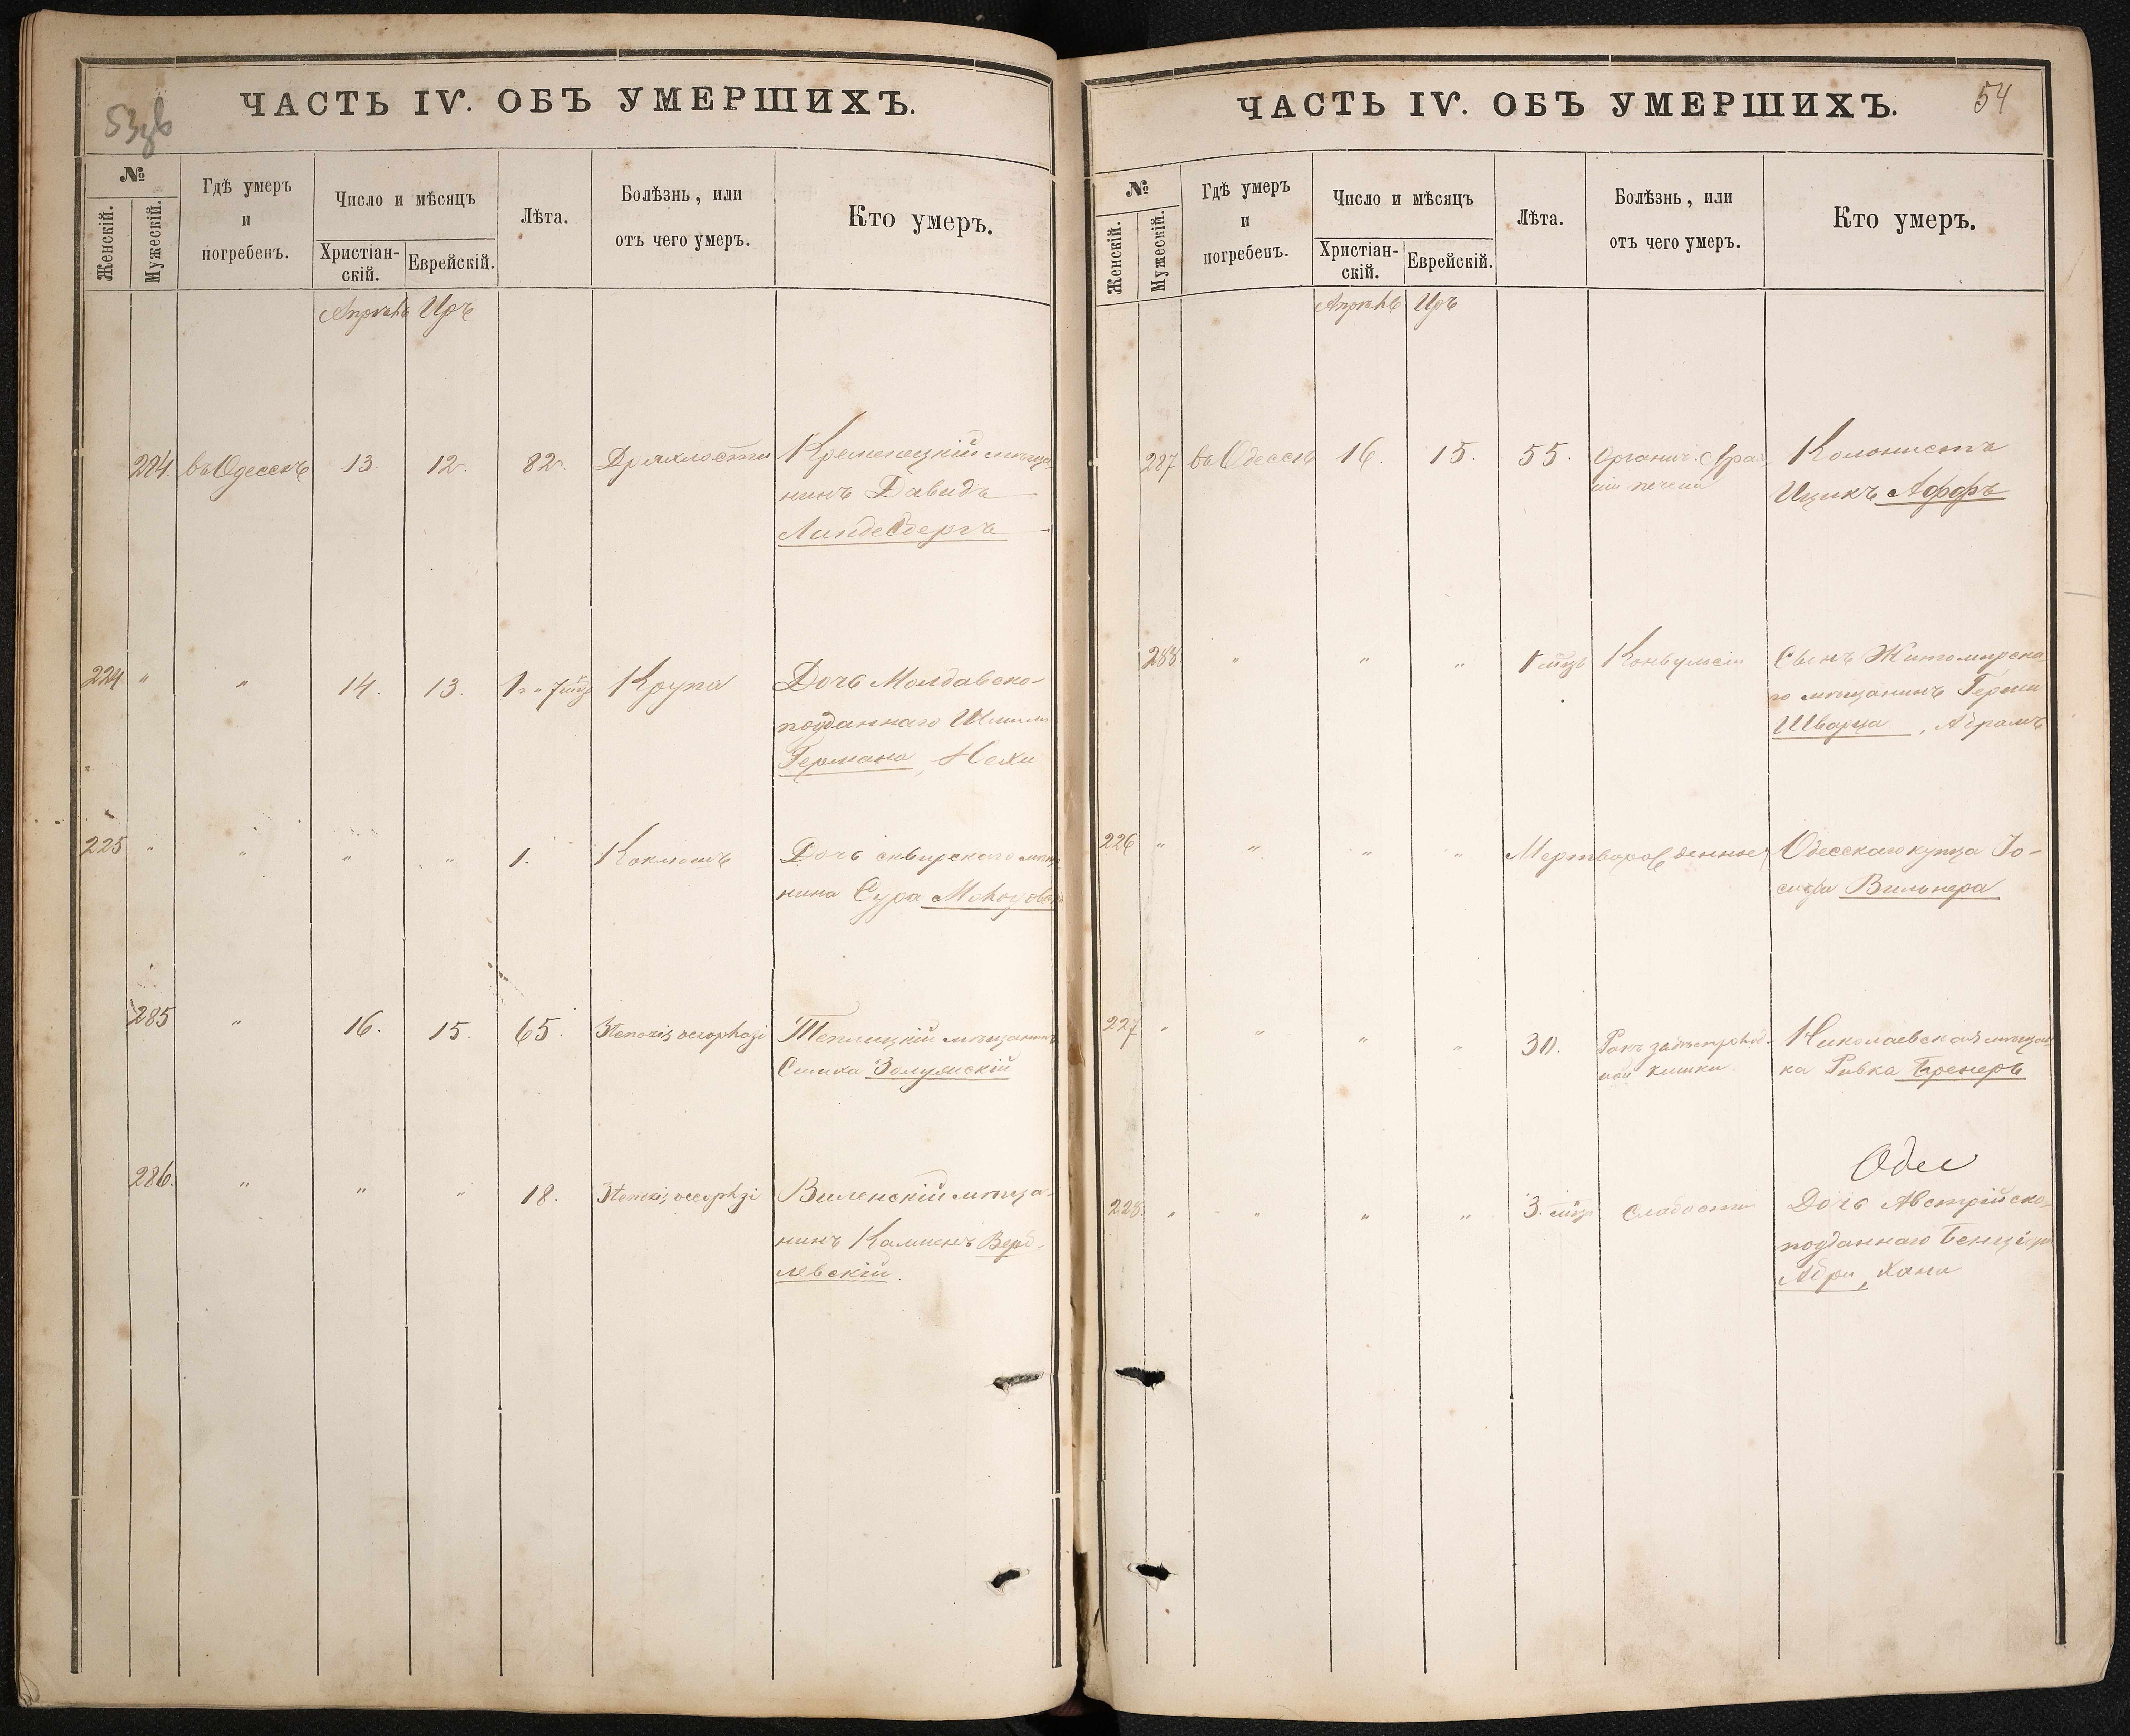 53зв
ЧАСТЬ IV. ОБЪ УМЕРШИХЪ.
№
Женскій.
Мужескій.
Гдѣ умеръ
и
погребенъ.
Число и мѣсяцъ
Христіан-
скій.
Еврейскій.
Лѣта.
Болѣзнь, или
отъ чего умеръ.
Кто умеръ.
Апрѣль Иръ
284. въ Одессѣ 13. 12. 82. Дряхлости Кременецкій мѣща-
нинъ Давидъ
Ландесбергъ
224 " " 14. 13. 1 г. 7 мѣс Крупа Дочь Молдавско-
подданнаго
Германа, Нехи
225 " " " " 1. Коклюшъ Дочь сквирскаго мѣща
нина Сура
285 " 16. 15. 65. Теплицкій мѣщанинъ
Симха
286. " " " 18. Виленскій мѣща-
нинъ Калменъ Верб-
левскій.
54
ЧАСТЬ IV. ОБЪ УМЕРШИХЪ.
№
Женскій.
Мужескій.
Гдѣ умеръ
и
погребенъ.
Число и мѣсяцъ
Христіан-
скій.
Еврейскій.
Лѣта.
Болѣзнь, или
отъ чего умеръ.
Кто умеръ.
Апрѣль Иръ
287 въ Одессѣ 16. 15. 55. Органич. Колонистъ
печени Ицикъ Аффъ
288. " " " 1 мѣс Конвульсіи Сынъ Житомирска
го мѣщанинъ Герша
Шварца, Абрамъ
226 " " " " Мертворожденное Одесскаго купца Іо-
сифа Вильнера
227 " " " " 30. Ракъ заднепроход- Николаевская мѣщан
ной кишки. ка Ривка Бренеръ
Одес
228. " " " " 3. мѣс Слабости Дочь Австрійско-
подданнаго
Абри, Хана